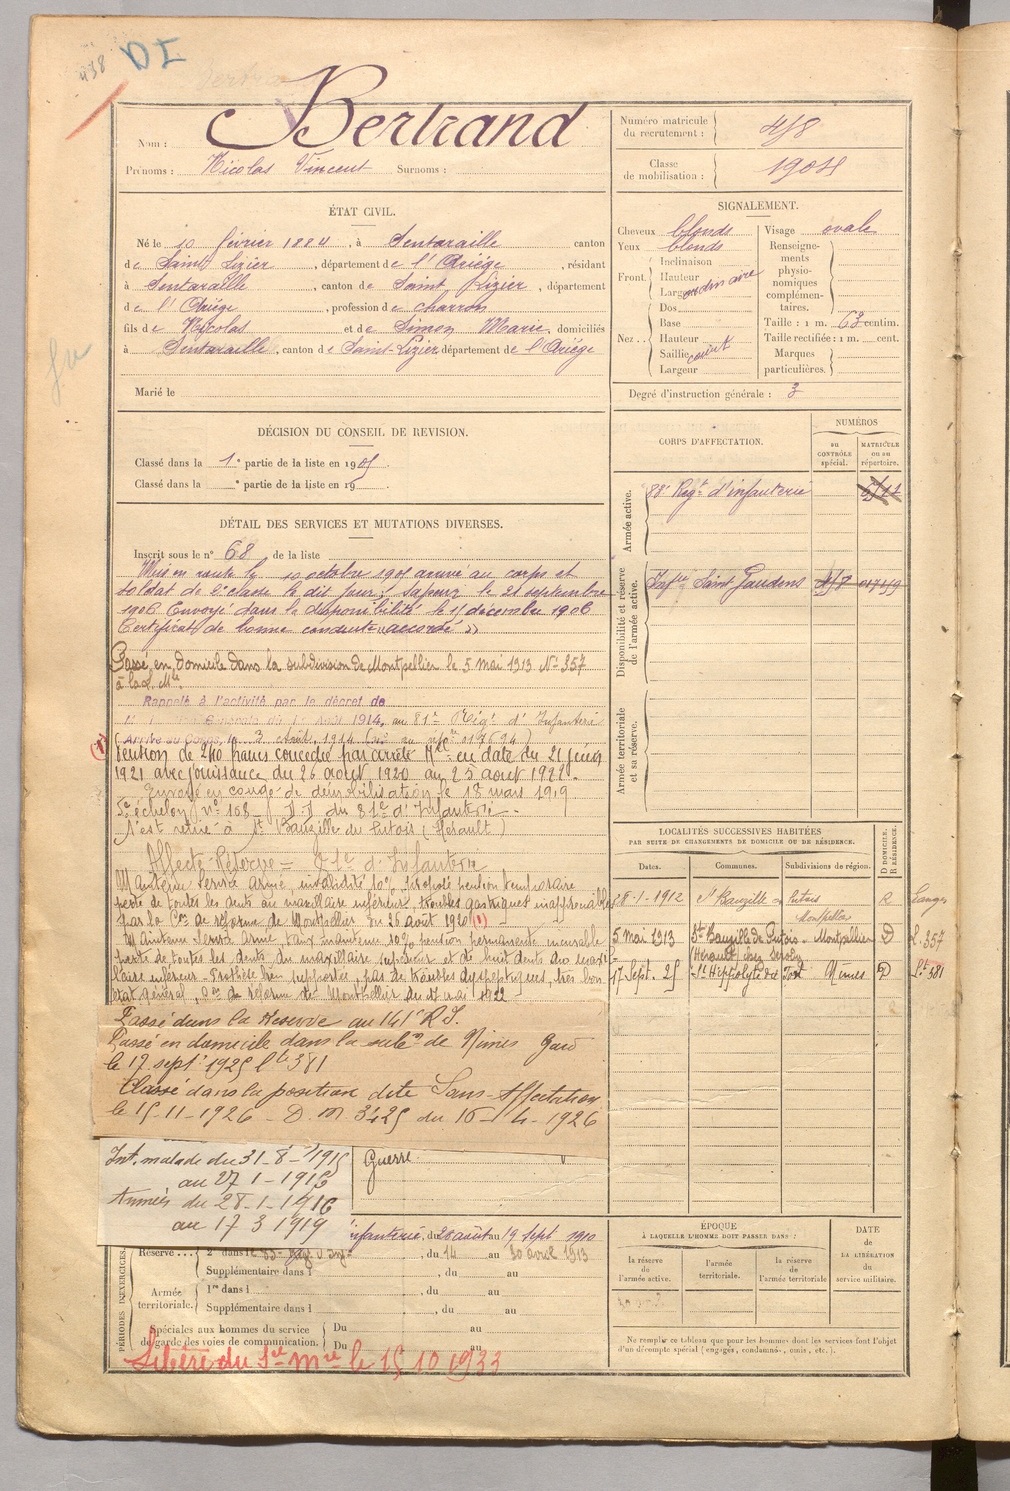 438
DI
Nom : Bertrand
Prénoms : Nicolas Vincent Surnoms :
Numéro matricule du recrutement : 458
Classe de mobilisation : 1904
ÉTAT CIVIL.
Né le 10 février 1884, à Sentaraille canton
de Saint Lizier, département de l'Ariége, résidant
à Sentaraille, canton de Saint Lizier, département
de l'Ariége, profession de charron
fils de Nicolas et de Simon Marie, domiciliés
à Sentaraille, canton de Saint-Lizier département de l'Ariége
Marié le
SIGNALEMENT.
Cheveux blonds
Yeux blonds
Front. Inclinaison
Hauteur
Largeur
ordinaire
Nez .. Dos
Base
Hauteur
Saillie court
Largeur
Visage ovale
Renseignements physionomiques complémentaires.
Taille : 1 m. 63 centim.
Taille rectifiée : 1 m. cent.
Marques particulières.
Degré d'instruction générale : 3
DÉCISION DU CONSEIL DE REVISION.
Classé dans la 1e partie de la liste en 1905
Classé dans la e partie de la liste en 19
CORPS D'AFFECTATION.
NUMÉROS
au CONTRÔLE spécial.
MATRICULE ou au répertoire.
Armée active.
88e Régt d'infanterie
Disponibilité et réserve de l'armée active.
Infie Saint Gaudens
Armée territoriale et sa réserve.
DÉTAIL DES SERVICES ET MUTATIONS DIVERSES.
Inscrit sous le n° 68 de la liste
Mis en route le 10 octobre 1905 arrivé au corps et
soldat de 2e classe le dit jour; sapeur le 21 septembre
1906 Envoyé dans la disponibilité le 15 décembre 1906
Certificat de bonne conduite "accordé"
Passé en domicile dans la subdivision de Montpellier le 5 mai 1913 No 357
Rappelé à l'activité par le décret de
1er Août 1914, au 81e Régt d'Infanterie
Arrivé au Corps, le 3 Août 1914
(1)
Pension de 240 francs concédée par arrêté Mel en date du 21 février
1921 avec jouissance du 26 août 1920 au 25 août 1922.
Envoyé en congé de démobilisation le 18 mars 1919
5e échelon n° 168 D.D. du 81e d'Infanterie
S'est retiré à St Bauzille du Putois (Hérault)
Affecté Réserve = 81e d'Infanterie
Maintenu service armé, invalidité 10%,
perte de toutes les dents au maxillaire inférieur, troubles gastriques inappréciables
par la Con de réforme de Montpellier du 26 août 1920 (1)
Maintenu service armé taux maintenu 10% pension permanente incurable
perte de toutes les dents du maxillaire supérieur et de huit dents du maxil-
laire inférieur. Prothèse bien supportée, pas de troubles dyspeptiques, très bon
état général, Con de réforme de Montpellier du 17 mai 1922
Passé dans la Réserve au 141e R.I.
Passé en domicile dans la subon de Nimes Gard
le 17 septe 1925 Lte 381
Classé dans la position dite Sans-Affectation
le 15-11-1926 - D.M. 3425 du 16-4-1926
LOCALITÉS SUCCESSIVES HABITÉES
PAR SUITE DE CHANGEMENTS DE DOMICILE OU DE RÉSIDENCE.
Dates. Communes. Subdivisions de région.
D DOMICILE. R RÉSIDENCE.
28-1-1912 St Bauzille de Putois Montpellier R
5 mai 1913 St Bauzille de Putois Montpellier D L. 357
(Hérault) chez
17 Sept. 25 St Hippolyte du Fort Nimes D Lt 381
Int. malade du 31-8-1915
au 27-1-1916
Armées du 28-1-1916
au 17 3 1919
Guerre
infanterie, du 28 août au 19 sept 1910
PÉRIODES D'EXERCICES.
Réserve ... 2e dans le, du 14 au 30 avril 1913
Supplémentaire dans l , du au
Armée territoriale. 1re dans l , du au
Supplémentaire dans l , du au
Spéciales aux hommes du service de garde des voies de communication. Du au
Du au
Libéré du Sce Mre le 15 10 1933
ÉPOQUE
À LAQUELLE L'HOMME DOIT PASSER DANS :
la réserve de l'armée active.
l'armée territoriale.
la réserve de l'armée territoriale
DATE DE LA LIBÉRATION du service militaire.
Ne remplir ce tableau que pour les hommes dont les services font l'objet
d'un décompte spécial (engagés, condamnés, omis, etc.).